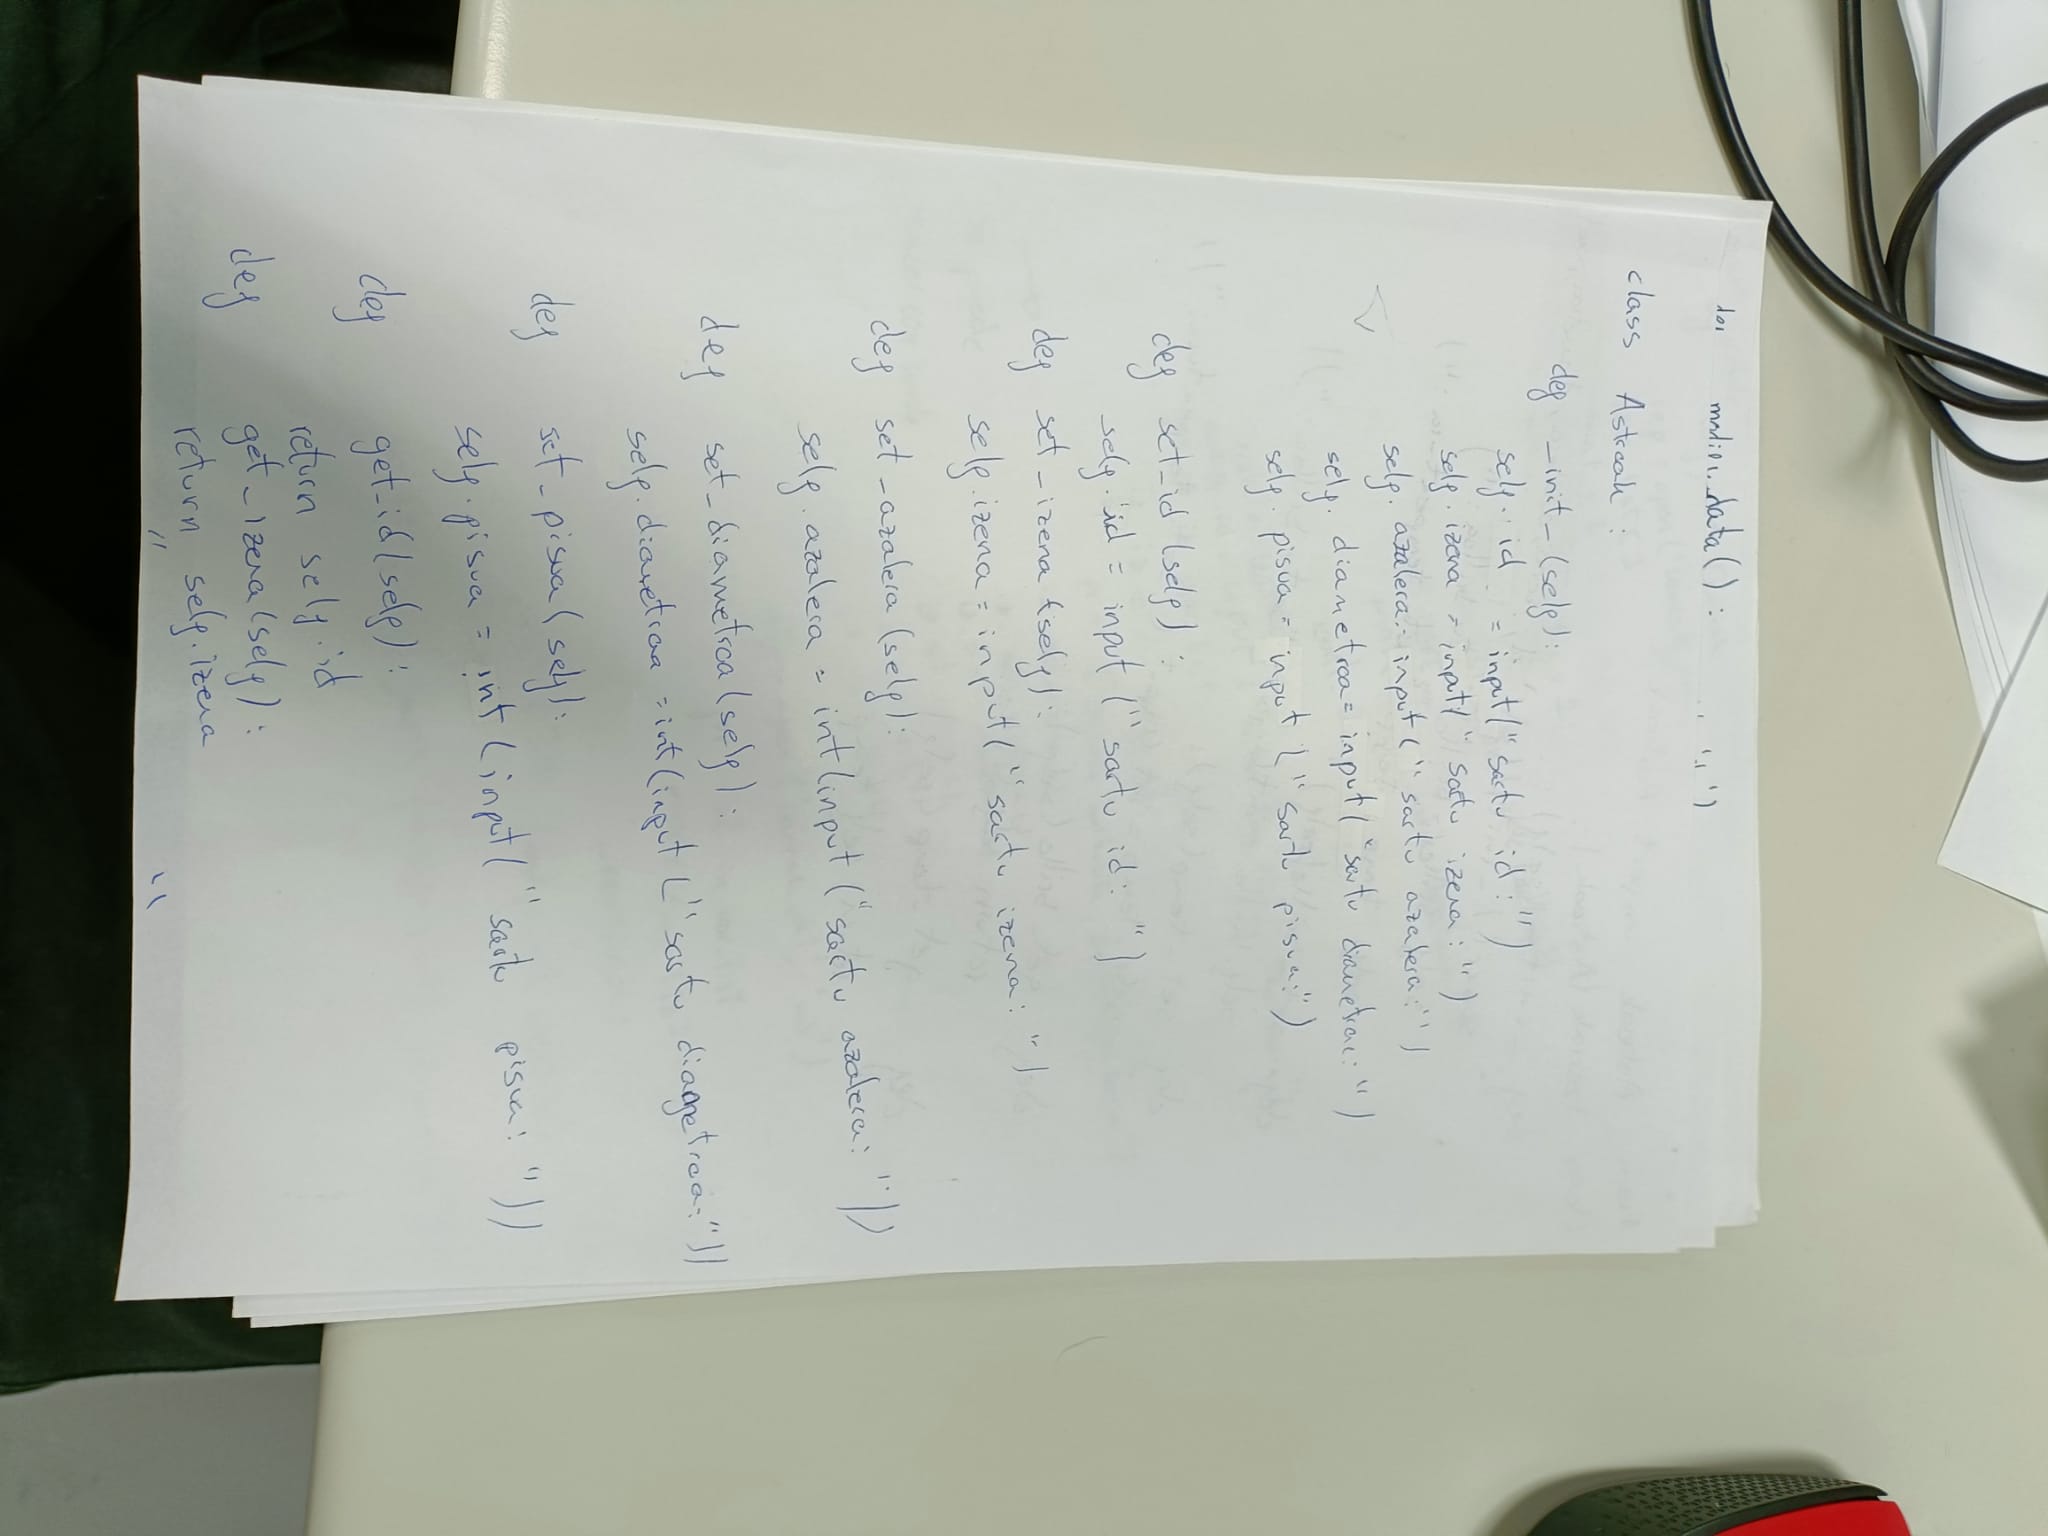 data():
class Astroak:
def _init_(self):
self.id = input("sartu id:")
self.izena = input("sartu izena:")
self.azalera = input("sartu azalera:")
self.diametroa = input("sartu diametroa:")
self.pisua = input("sartu pisua:")
def set_id (self):
self.id = input("sartu id: ")
def set_izena (self):
self.izena = input("sartu izena: ")
def set_azalera (self):
self.azalera = int(input("sartu azalera: "))
def set_diametroa (self):
self.diametroa = int(input("sartu diametroa:"))
def set_pisua (self):
self.pisua = int(input("sartu pisua: "))
def get_id(self):
return self.id
def get_izena(self):
return self.izena
" "